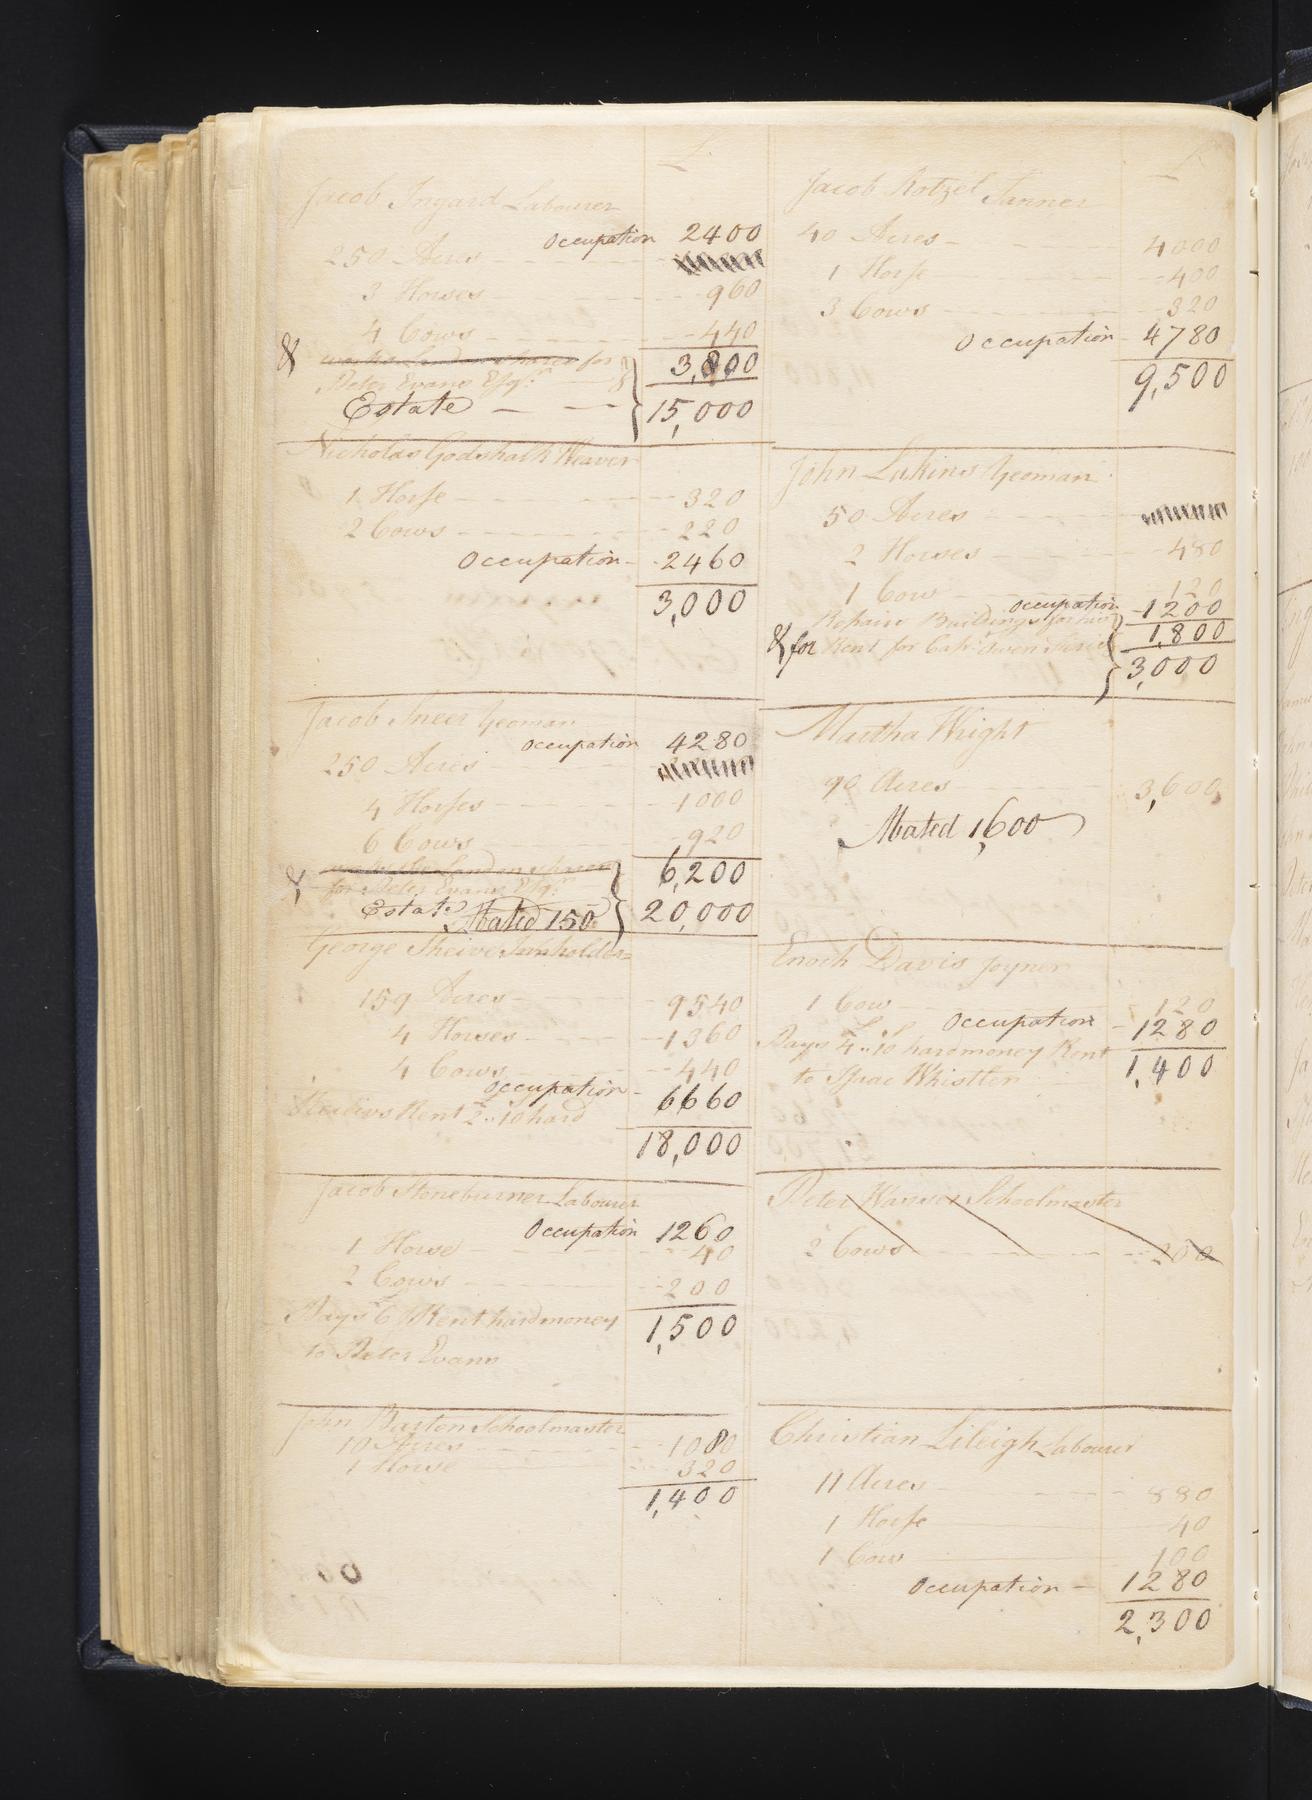 £
Jacob Ingard Labourer
Occupation 2400
250 Acres
3 Horses 960
4 Cows 440
& works Land on shares for 3,800
Peter Evans Esqr.
Estate 15,000
Nicholas Godshalk Weaver
1 Horse 320
2 Cows 220
Occupation 2460
3,000
Jacob Yoeman
Occupation 4280
250 Acres
4 Horses 1000
6 Cows 920
& works the Land on shares 6,200
for Peter Evans Esqr.
Estate Abated 150 20,000
George Sheive Innholder
159 Acres 9540
4 Horses 1360
4 Cows 440
Occupation 6660
Receives Rent £2..10 hard
18,000
Jacob Stoneburner Labourer
Occupation 1260
1 Horse 40
2 Cows 200
Pays £6 Rent hard money 1,500
to Peter Evans
John Barton Schoolmaster
10 Acres 1080
1 Horse 320
1,400
£
Jacob Kotzel Tanner
40 Acres 4000
1 Horse 400
3 Cows 320
Occupation 4780
9,500
John Lukins Yeoman
50 Acres
2 Horses 480
1 Cow 120
Occupation 1200
Repairs Buildings for 1,800
& for Rent for Capt. Owen 3,000
Martha Wright
90 Acres 3,600
Abated 1,600
Enoch Davis Joyner
1 Cow 120
Occupation 1280
Pays £4..10 hard money Rent 1,400
to Isaac Whistler
Peter Schoolmaster
2 Cows 200
Christian Lileigh Labourer
11 Acres 880
1 Horse 40
1 Cow 100
Occupation 1280
2,300